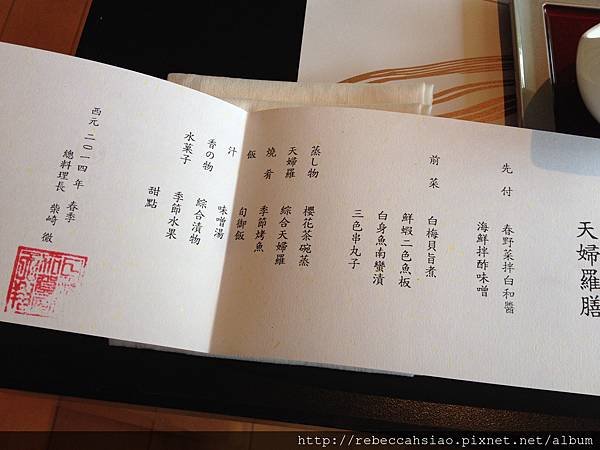 天婦羅膳
先付 春野菜拌白和醬
海鮮拌酢味噌
前菜 白梅貝旨煮
鮮蝦二色魚板
白身魚南蠻漬
三色串丸子
蒸し物 櫻花茶碗蒸
天婦羅 綜合天婦羅
燒肴 季節烤魚
飯 旬御飯
汁 味噌湯
香の物 綜合漬物
水菓子 季節水果
甜點
西元 二〇一四年 春季
總料理長 柴崎 徹
http://rebeccahsiao.pixnet.net/album